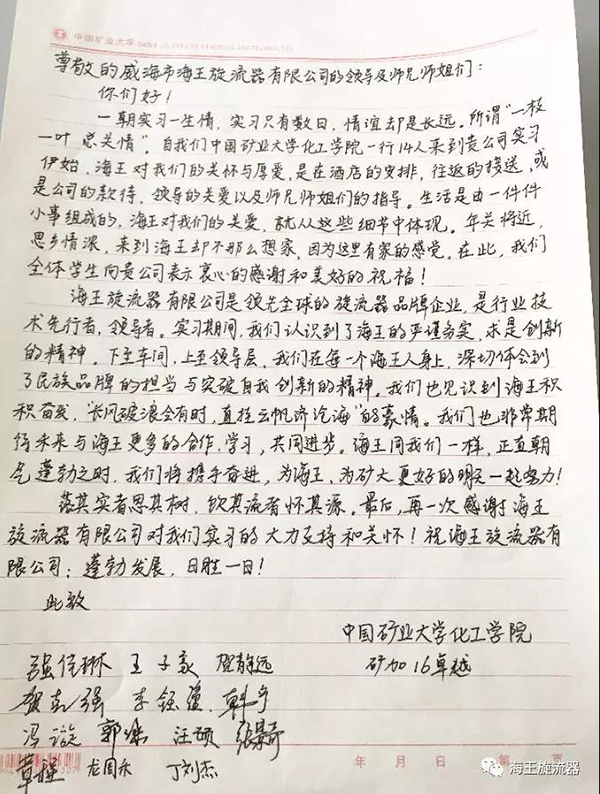 中国矿业大学 CHINA UNIVERSITY OF MINING AND TECHNOLOGY
尊敬的威海市海王旋流器有限公司的领导及师兄师姐们：
你们好！
一朝实习一生情，实习只有数日，情谊却是长远。所谓“一枝
一叶总关情”，自我们中国矿业大学化工学院一行14人来到贵公司实习
伊始，海王对我们的关怀与厚爱，是在酒店的安排，往返的接送，或
是公司的款待，领导的关爱以及师兄师姐们的指导。生活是由一件件
小事组成的，海王对我们的关爱，就从这些细节中体现。年关将近，
思乡情浓，来到海王却不那么想家，因为这里有家的感觉，在此，我们
全体学生向贵公司表示衷心的感谢和美好的祝福！
海王旋流器有限公司是领先全球的旋流器品牌企业，是行业技
术先行者，领导者。实习期间，我们认识到了海王的严谨务实，求是创新
的精神，下至车间，上至领导层，我们在每一个海王人身上，深切体会到
了民族品牌的担当与突破自我创新的精神。我们也见识到海王积
积奋发，“长风破浪会有时，直挂云帆济沧海”的豪情。我们也非常期
待未来与海王更多的合作，学习，共同进步。海王同我们一样，正直朝
气蓬勃之时，我们将携手奋进，为海王、为矿大更好的明天一起努力！
落其实者思其树，饮其流者怀其源。最后，再一次感谢海王
旋流器有限公司对我们实习的大力支持和关怀！祝海王旋流器有
限公司：蓬勃发展，日胜一日！
此致
中国矿业大学化工学院
矿加16卓越
王子豪 贺静远
李钰
冯璇 郭 汪硕
龙国永 丁刘杰
年 月 日 第 页
海王旋流器